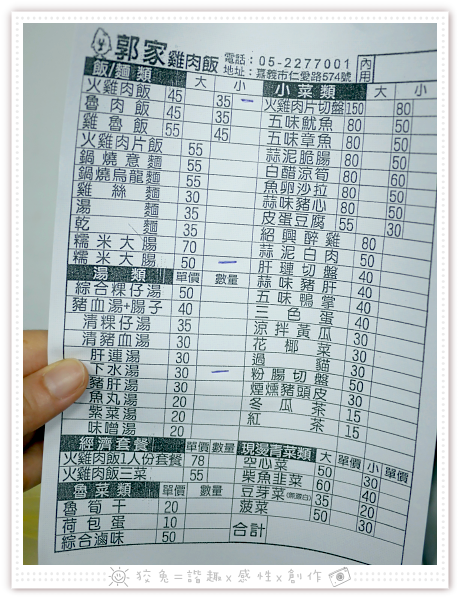 郭家雞肉飯 電話：05-2277001 地址：嘉義市仁愛路574號 內用
飯/麵類 大 小
火雞肉飯 45 35
魯肉飯 45 35
雞魯飯 55 45
火雞肉片飯 55
鍋燒意麵 55
鍋燒烏龍麵 55
雞絲麵 30
湯麵 35
乾麵 35
糯米大腸 70
糯米大腸 50
湯類 單價 數量
綜合粿仔湯 50
豬血湯+腸子 40
清粿仔湯 35
清豬血湯 30
肝連湯 30
下水湯 30
豬肝湯 30
魚丸湯 20
紫菜湯 20
味噌湯 20
經濟套餐 單價 數量
火雞肉飯1人份套餐 78
火雞肉飯三菜 55
魯菜類 單價 數量
魯筍干 20
荷包蛋 10
綜合滷味 50
小菜類 大 小
火雞肉片切盤 150 80
五味魷魚 80 50
五味章魚 80 50
蒜泥脆腸 80 50
白醋涼筍 80 60
魚卵沙拉 80 50
蒜味豬心 80 50
皮蛋豆腐 55 30
紹興醉雞 80
蒜泥白肉 50
肝連切盤 40
蒜味豬肝 40
五味鴨掌 40
三色蛋 40
涼拌黃瓜 30
花椰菜 30
過貓 30
粉腸切盤 50
煙燻豬頭皮 30
冬瓜茶 15
紅茶 15
現燙青菜類 大 單價 小 單價
空心菜 50 30
柴魚韭菜 60 40
豆芽菜 35 20
菠菜 50 30
合計
狡兔=諧趣x感性x創作